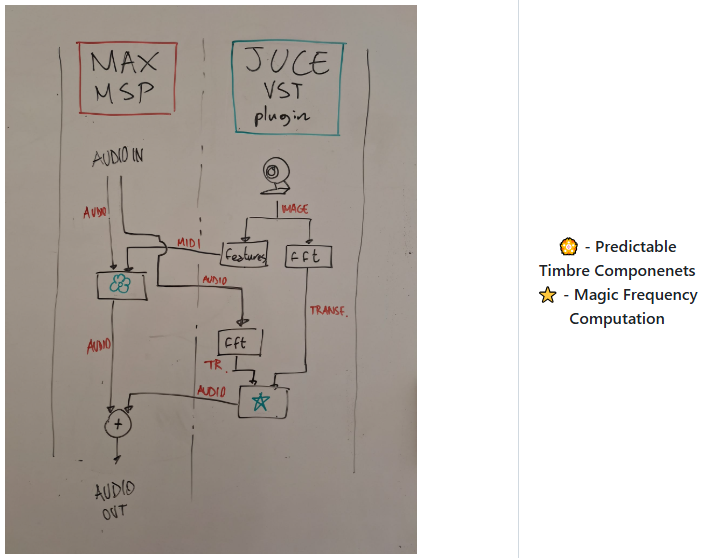 MAX
MSP
JUCE
VST
plugin
AUDIO IN
IMAGE
AUDIO
MIDI
features
fft
AUDIO
TRANSF.
fft
AUDIO
TR.
AUDIO
+
AUDIO
OUT
- Predictable
Timbre Componenets
- Magic Frequency
Computation